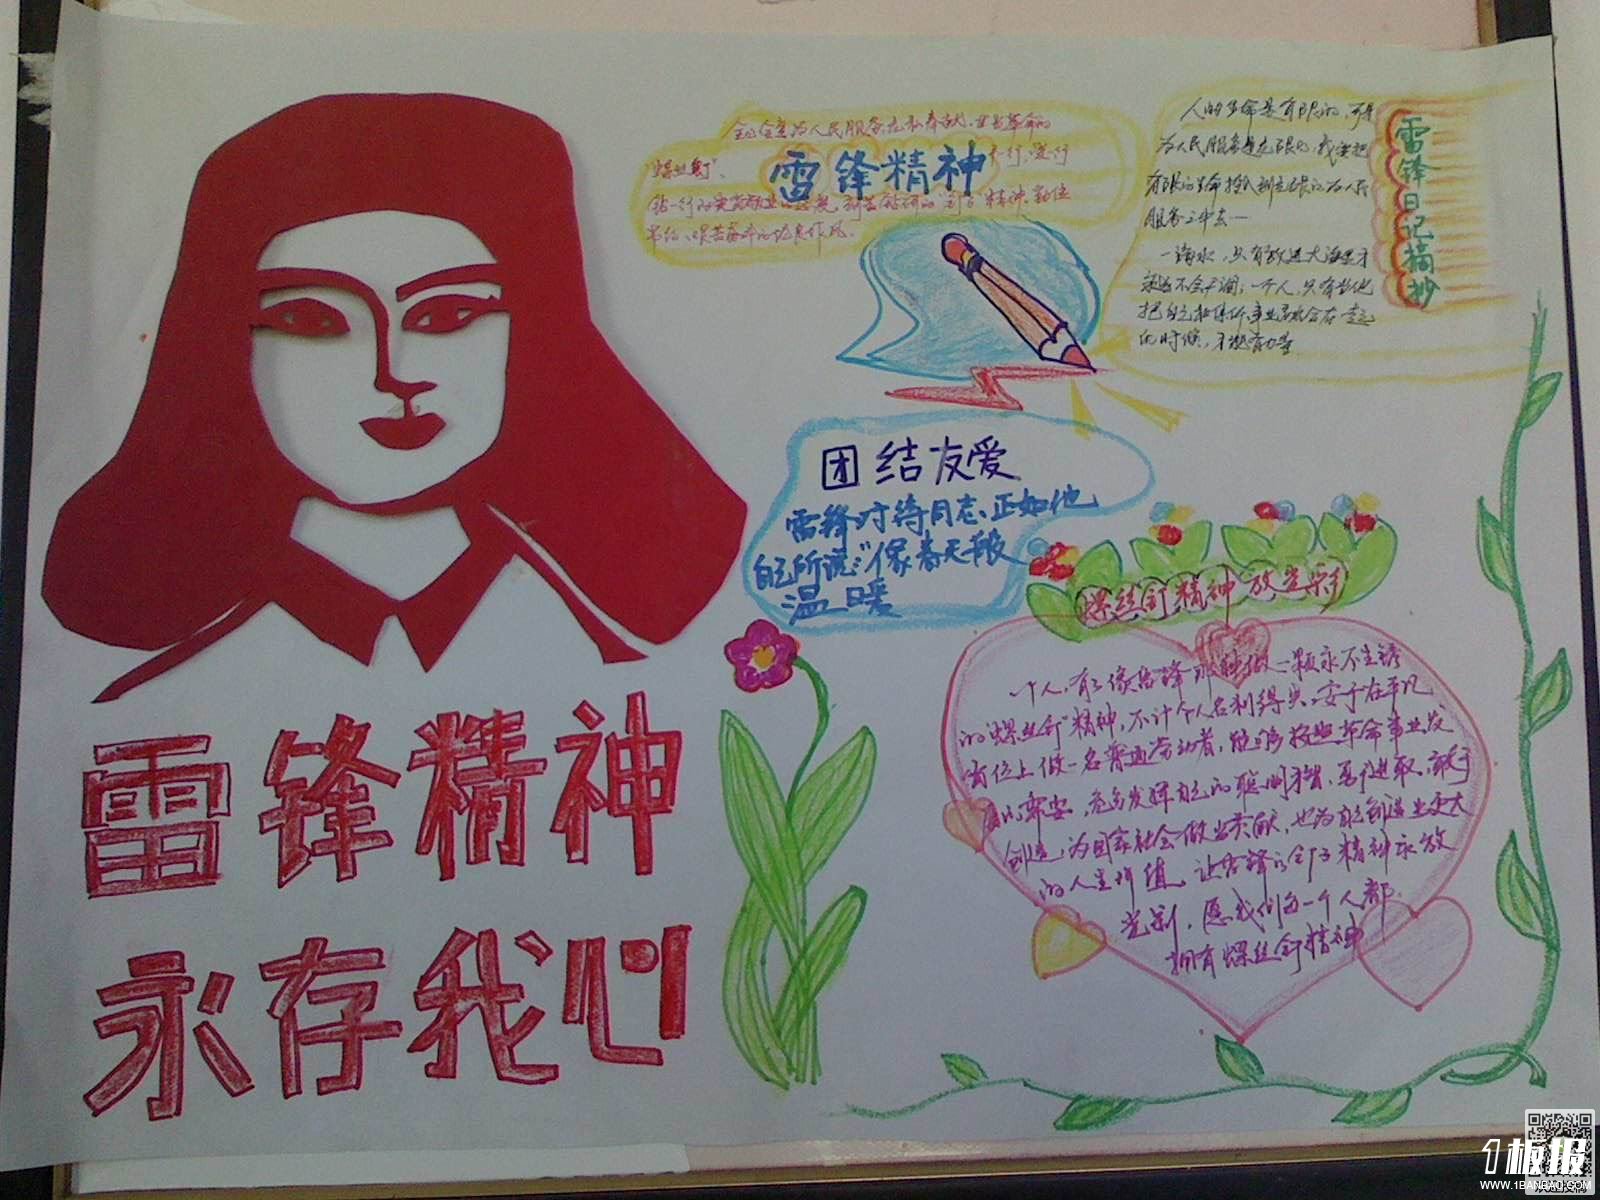 全心全意为人民服务,无私奉献,
"螺丝钉"
雷锋精神
钻一行的爱岗敬业的态度,刻苦钻研的"钉子"精神,勤俭
节约、艰苦奋斗的优良作风.
雷锋日记摘抄
人的生命是有限的,可是
为人民服务是无限的,我要把
有限的生命投入到无限的为人民
服务之中去…
一滴水,只有放进大海里才
永远不会干涸,一个人,只有当他
把自己和集体事业融合在一起
的时候,才能有力量
团结友爱
雷锋对待同志,正如他
自己所说:"像春天般
温暖
螺丝钉精神放光彩
一个人,有了像雷锋那种做一颗永不生锈
的"螺丝钉"精神,不计个人名利得失,安于在平凡
岗位上做一名普通劳动者,能够按照革命事业发
创造,为国家社会做出贡献,也为自己创造出更大
的人生价值,让雷锋的钉子精神永放
光彩,愿我们每一个人都
拥有螺丝钉精神
雷锋精神
永存我心
1板报
WWW.1BANBAO.COM